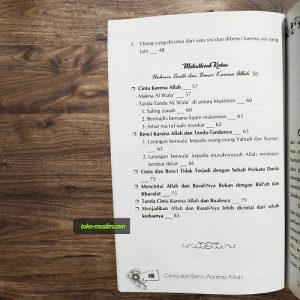 3. Orang yang dicintai dari satu sisi dan dibenci karena sisi yang
lain ___ 48
Muhadharah Kedua
Hukum Cinta dan Benci Karena Allah
❐ Cinta Karena Allah ___ 57
- Makna Al Wala' ___ 57
- Tanda-Tanda Al Wala' di antara Muslimin ___ 60
1. Saling ziarah ___ 60
2. Bermajlis bersama kaum mukminin ___ 61
3. Amar ma'ruf nahi munkar ___ 62
❐ Benci Karena Allah dan Tanda-Tandanya ___ 63
1. Larangan berwala' kepada orang-orang Yahudi dan Nasrani
___ 63
2. Larangan berwala' kepada musuh-musuh Allah meskipun
kerabat dekat ___ 66
❐ Cinta dan Benci Tidak Terjadi dengan Sebab Perkara Dunia
___ 73
❐ Mencintai Allah dan Rasul-Nya Bukan dengan Bid'ah dan
Khurafat ___ 75
❐ Tanda Cinta Karena Allah dan Buahnya ___ 79
❐ Menjadikan Allah dan Rasul-Nya lebih dicintai dari selain
keduanya ___ 81
toko-muslim.com
viii Cinta dan Benci Karena Allah